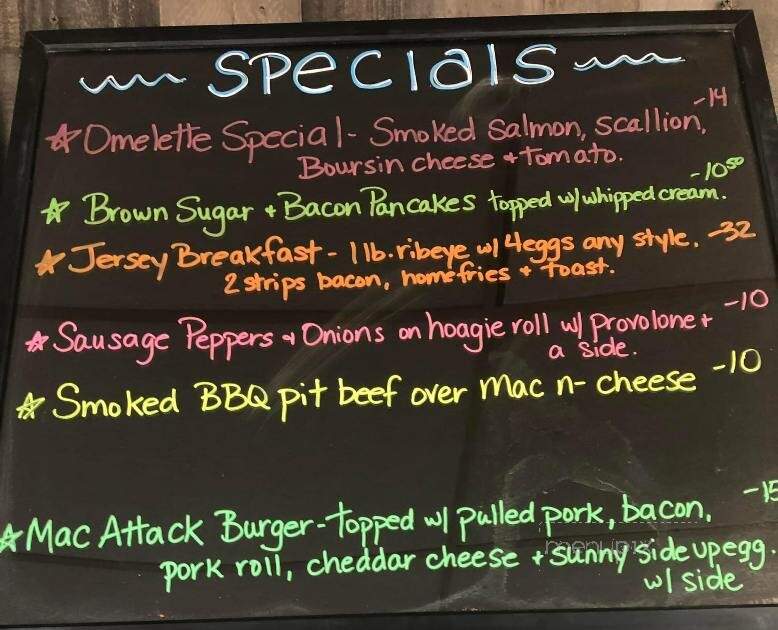 SPECIALS
Omelette Special - Smoked Salmon, Scallion, -14
Boursin cheese + tomato.
Brown Sugar + Bacon Pancakes topped w/ whipped cream. -10⁵⁰
Jersey Breakfast - 1 lb. ribeye w/ 4eggs any style. -32
2 strips bacon, homefries + toast.
Sausage Peppers + Onions on hoagie roll w/ Provolone + -10
a side.
Smoked BBQ pit beef over Mac n- cheese -10
Mac Attack Burger - topped w/ pulled pork, bacon, -15
pork roll, cheddar cheese + sunny side up egg.
w/ side